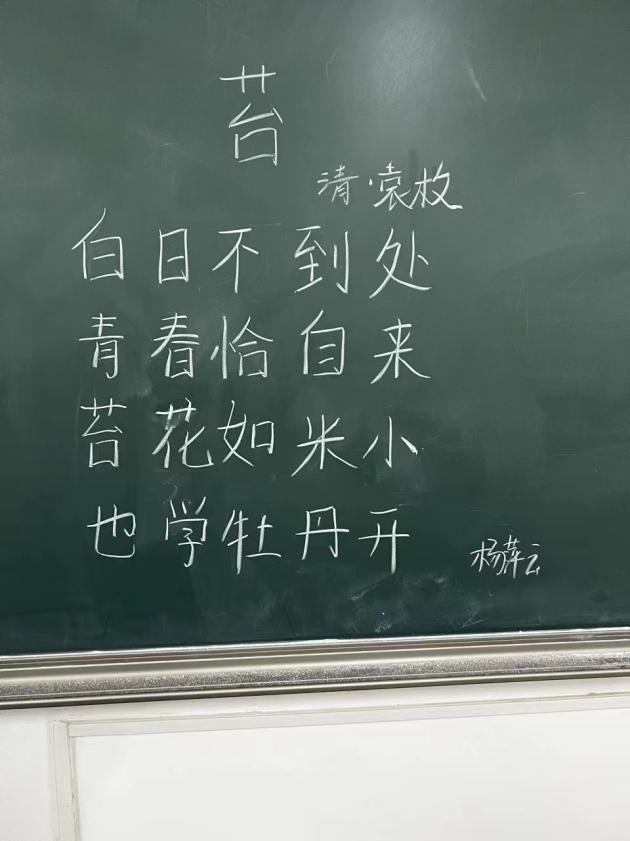 苔
清·袁枚
白日不到处
青春恰自来
苔花如米小
也学牡丹开
杨萍云